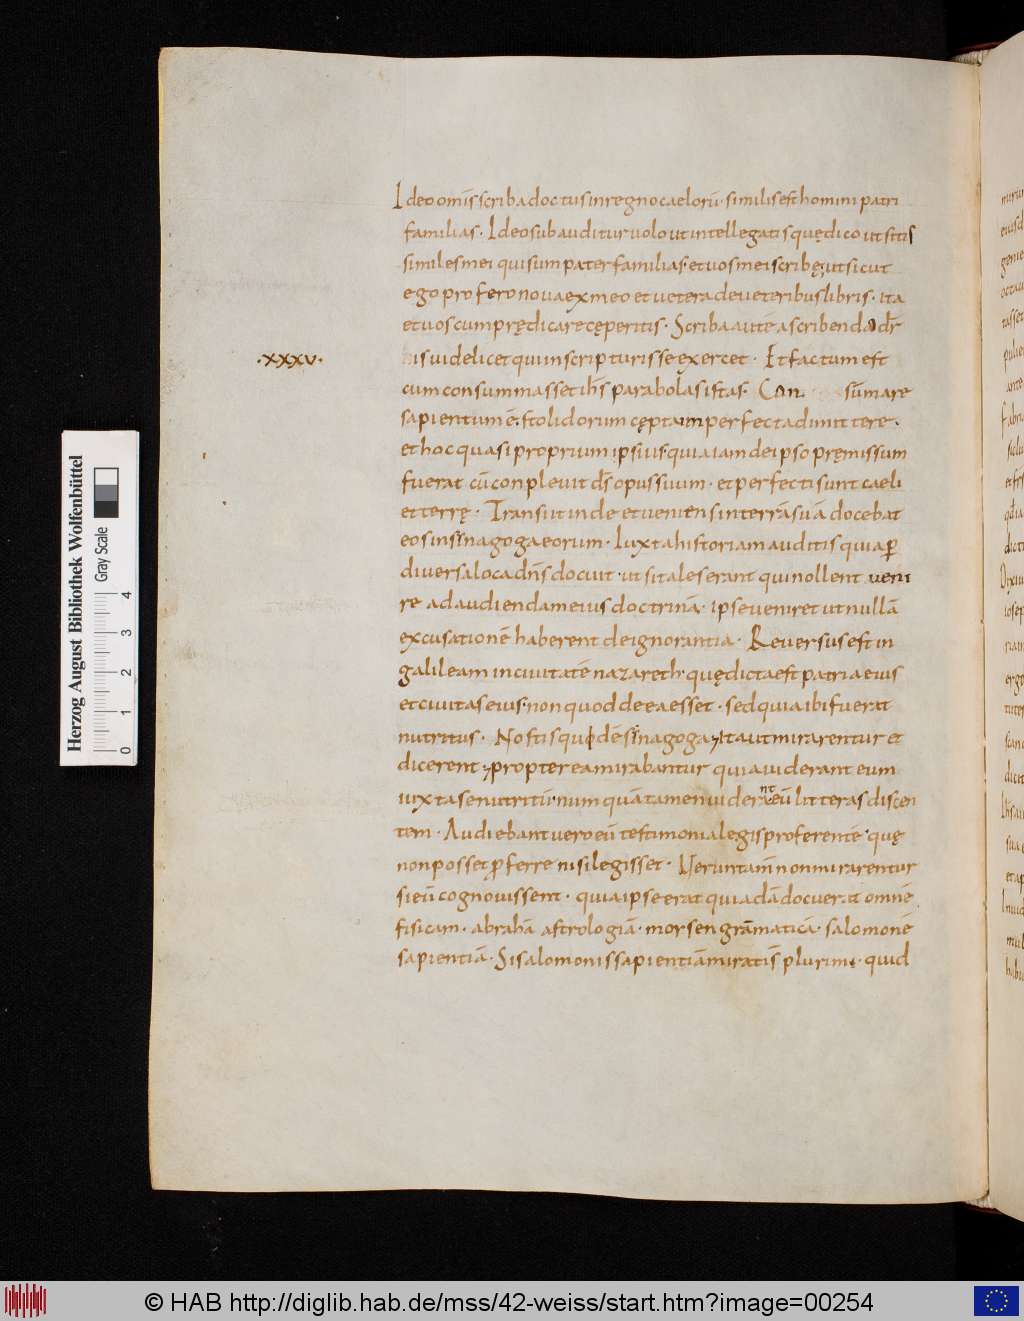 Ideo omīs scriba doctus in regno caelorū· similis est homini patri
familias· Ideo subauditur uolo ut intellegatis quę dico ut sitis
similes mei qui sum pater familias· et uos mei scribę· ut sicut
ego profero noua ex meo et uetera de ueteribus libris· ita
et uos cum prędicare cęperitis· Scriba autē a scribendo dr̄
is uidelicet qui in scripturis se exercet· Et factum est
·XXXV·
cum consummasset ihs̄ parabolas istas· Con sūmare
sapientum ē· stolidorum cępta imperfecta dimittere·
et hoc quasi proprium ipsius· quia iam de ipso pręmissum
fuerat cū conpleuit ds̄ opus suum· et perfecti sunt caeli
et terrę· Transiit inde et ueniens in terrā suā docebat
eos in sinagoga eorum· Iuxta historiam auditis quia p̄
diuersa loca dn̄s docuit· ut si tales erant qui nollent ueni
re ad audiendam eius doctrinā· ipse ueniret ut nullā
excusationē haberent de ignorantia· Reuersus est in
galileam in ciuitatē nazareth· quę dicta est patria eius
et ciuitas eius· non quod de ea esset· sed quia ibi fuerat
nutritus· Nostis quid ē sinagoga· Ita ut mirarentur et
dicerent· propterea mirabantur quia uiderant eum
iuxta se nutritū· numquā tamen uiderant eū litteras discen
tem· Audiebant uero eū testimonia legis proferentē· quę
non posset p̄ferre nisi legisset· Ueruntam̄ non mirarentur
si eū cognouissent· quia ipse erat qui adā docuerat omnē
fisicam· abrahā astrologiā· morsen grāmaticā· salomonē
sapientiā· Si salomonis sapientiā mirati s̄ plurimi· quid
Herzog August Bibliothek Wolfenbüttel
Gray Scale
0 1 2 3 4
© HAB http://diglib.hab.de/mss/42-weiss/start.htm?image=00254